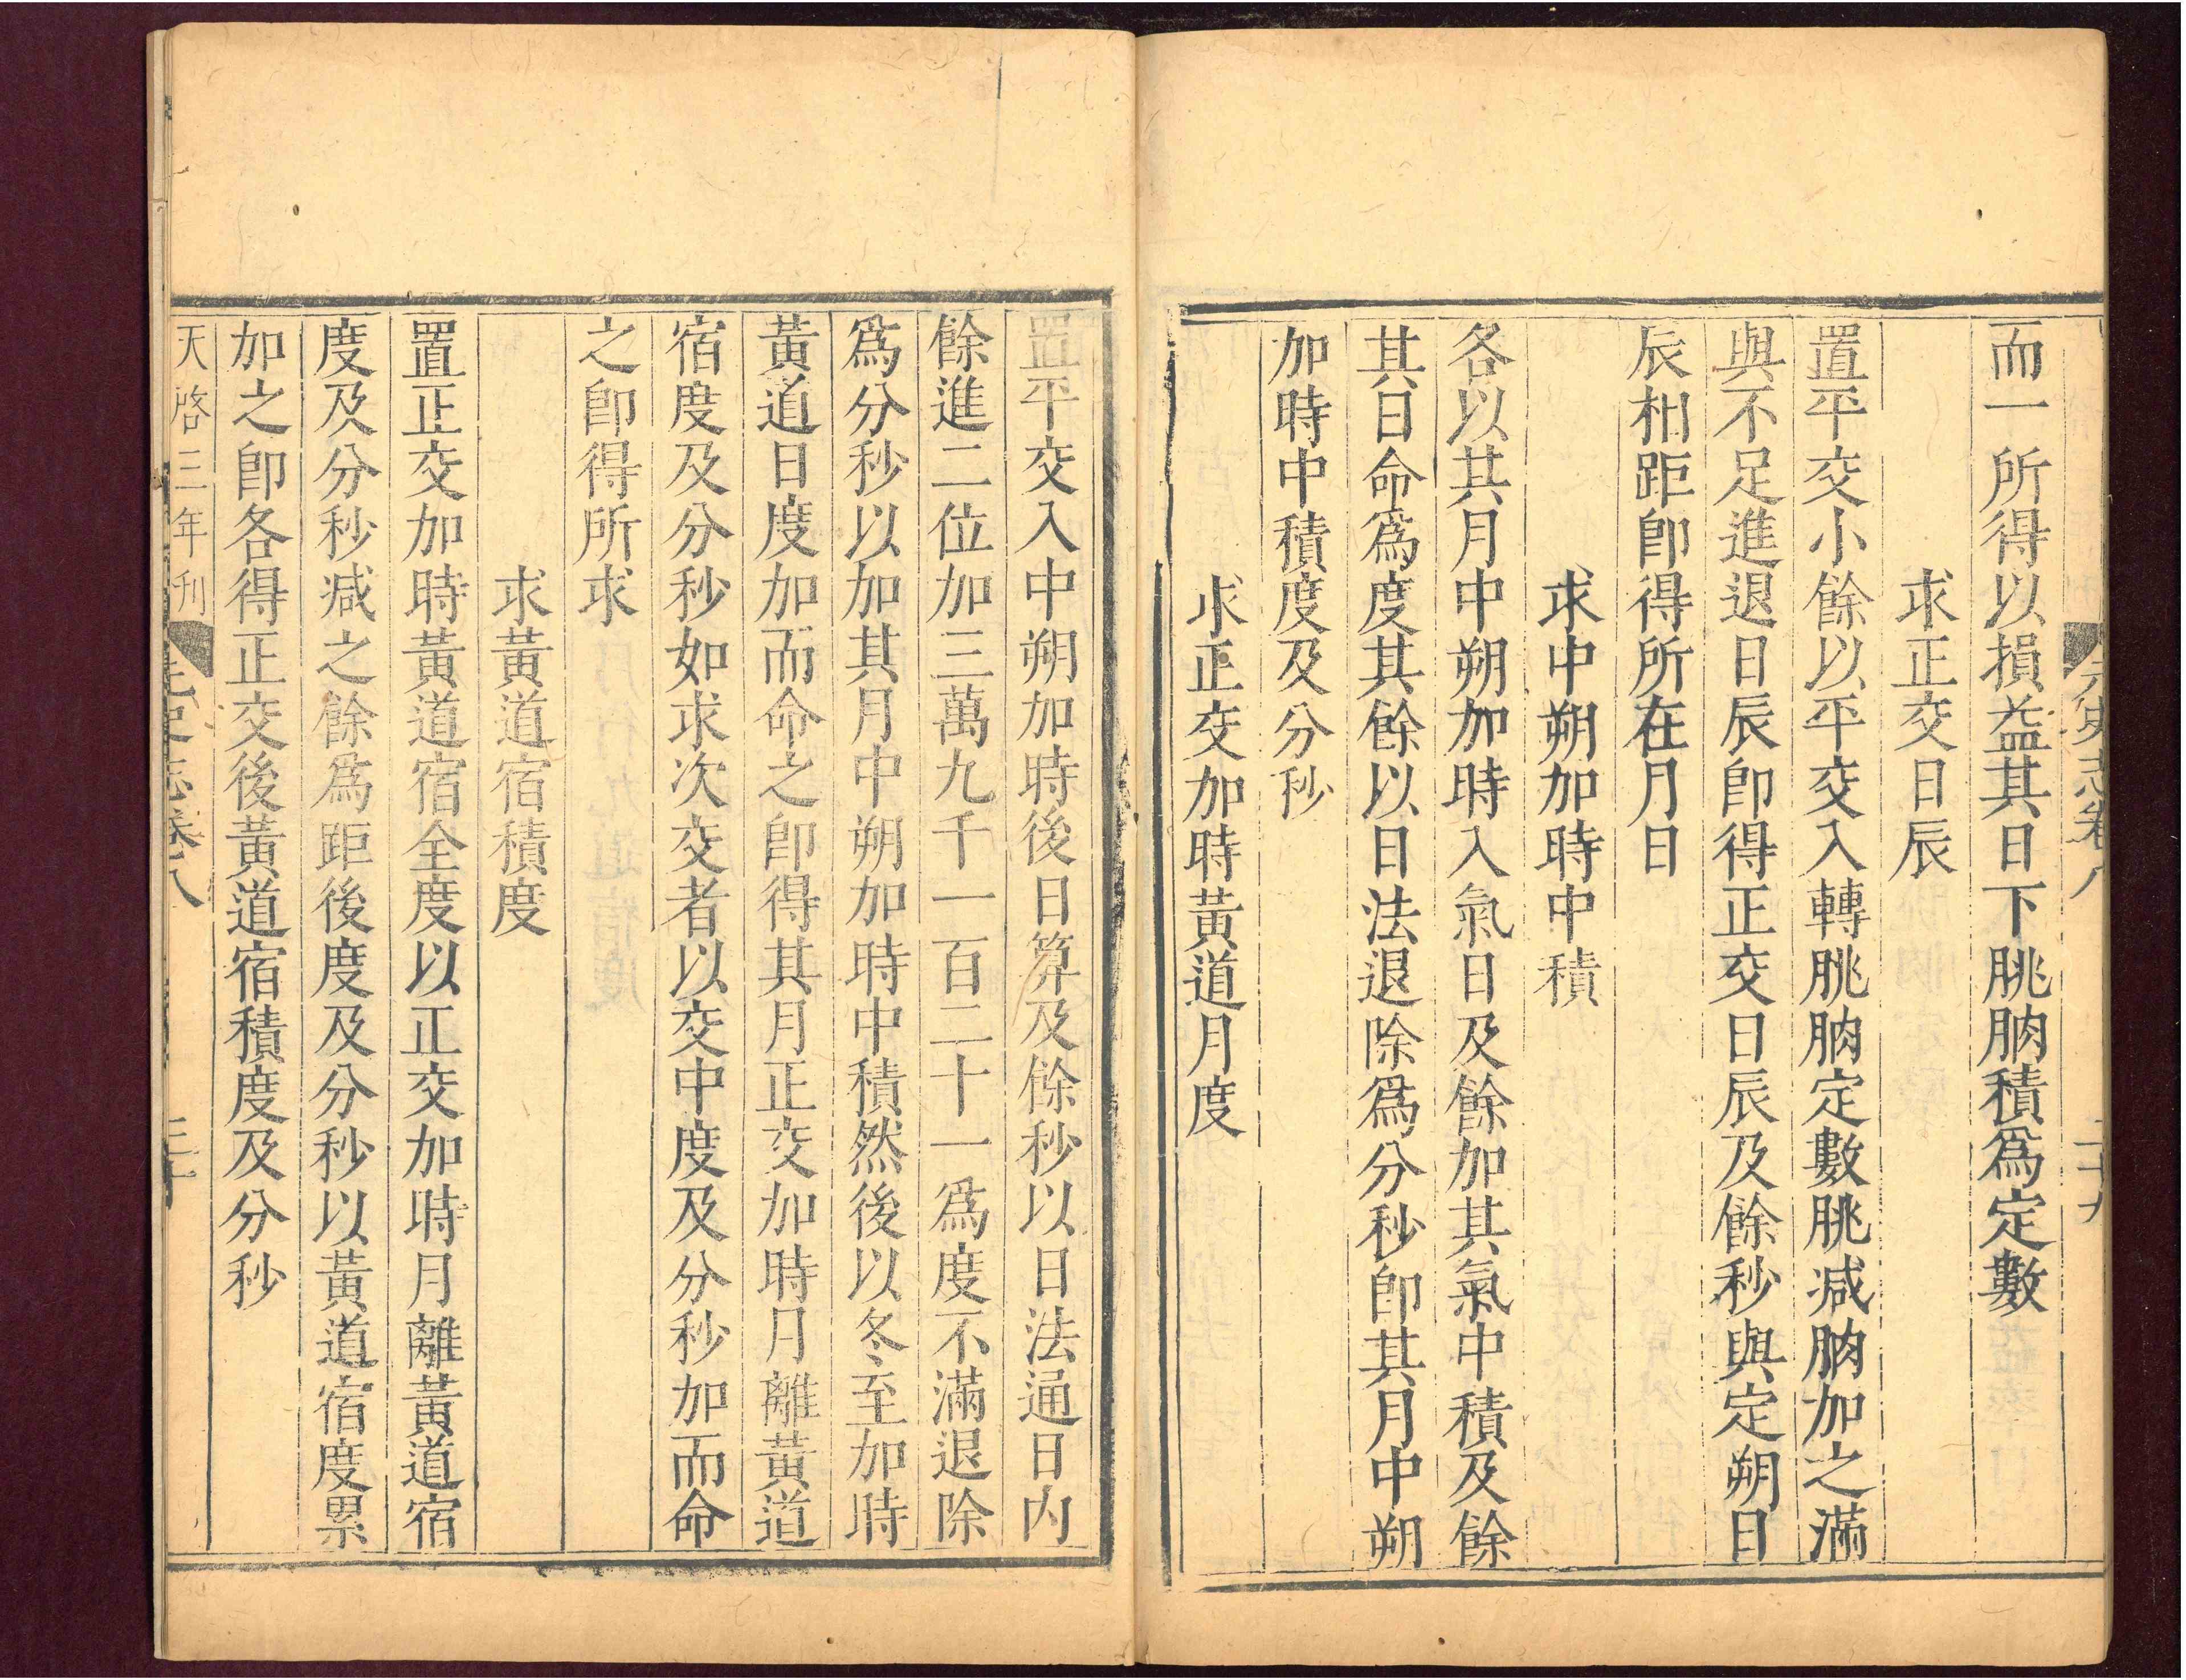 元史志卷八 二十九
而一所得以損益其日下朓朒積爲定數
求正交日辰
置平交小餘以平交入轉朓朒定數朓减朒加之滿
與不足進退日辰卽得正交日辰及餘秒與定朔日
辰相距卽得所在月日
求中朔加時中積
各以其月中朔加時入氣日及餘加其氣中積及餘
其日命爲度其餘以日法退除爲分秒卽其月中朔
加時中積度及分秒
求正交加時黃道月度
置平交入中朔加時後日算及餘秒以日法通日內
餘進二位加三萬九千一百二十一爲度不滿退除
爲分秒以加其月中朔加時中積然後以冬至加時
黃道日度加而命之卽得其月正交加時月離黃道
宿度及分秒如求次交者以交中度及分秒加而命
之卽得所求
求黃道宿積度
置正交加時黃道宿全度以正交加時月離黃道宿
度及分秒减之餘爲距後度及分秒以黃道宿度累
加之卽各得正交後黃道宿積度及分秒
天啓三年刊 元史志卷八 三十